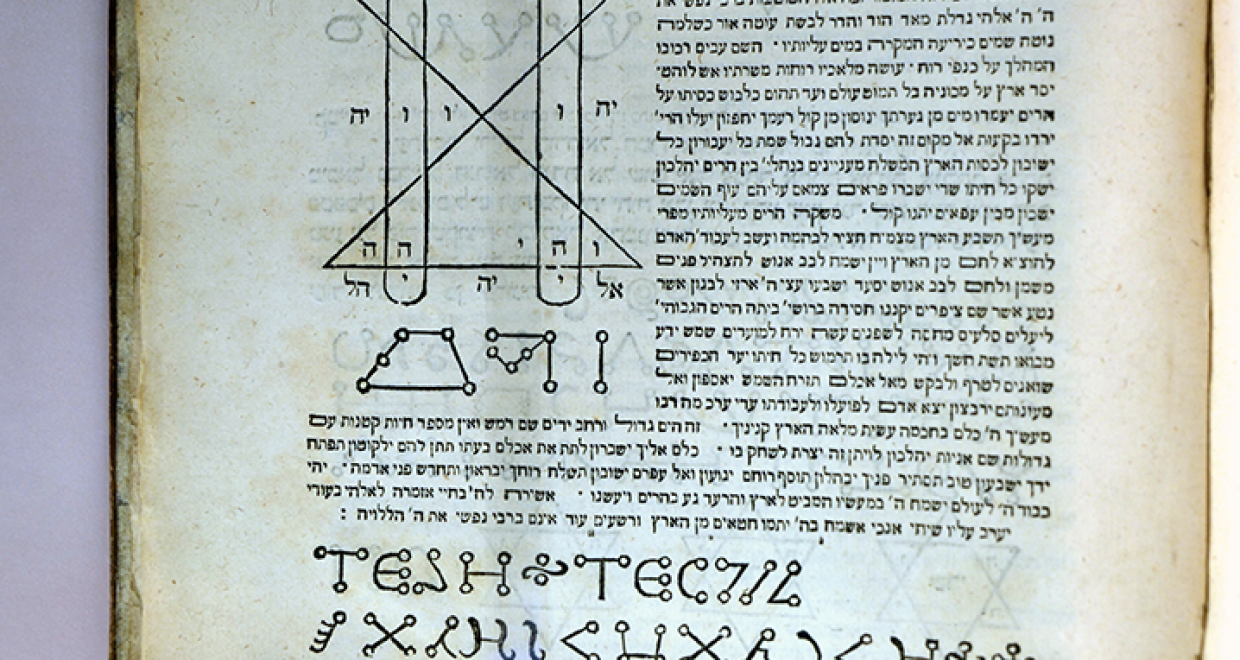 ה' ה' אלהי גדלת מאד הוד והדר לבשת עוטה אור כשלמה
נוטה שמים כיריעה המקרה במים עליותיו · השם עבים רכובו
המהלך על כנפי רוח · עושה מלאכיו רוחות משרתיו אש לוהט·
יסד ארץ על מכוניה בל תמוט עולם ועד תהום כלבוש כסיתו על
הרים יעמדו מים מן גערתך ינוסון מן קול רעמך יחפזון יעלו הרי'
ירדו בקעות אל מקום זה יסדת להם גבול שמת בל יעבורון בל
ישובון לכסות הארץ המשלח מעניינים בנחלי' בין הרים יהלכון
ישקו כל חיתו שדי ישברו פראים צמאם עליהם עוף השמים
ישכון מבין עפאים יתנו קול · משקה הרים מעליותיו מפרי
מעש'ך תשבע הארץ מצמיח חציר לבהמה ועשב לעבוד' האדם
להוציא לחם מן הארץ ויין ישמח לבב אנוש להצהיל פנים
משמן ולחם לבב אנוש יסעד ישבעו עצי ה' ארזי לבנון אשר
נטע אשר שם ציפרים יקננו חסידה ברושי' ביתה הרים הגבוהי'
ליעלים סלעים מחסה לשפנים עשה ירח למועדים שמש ידע
מבואו תשת חשך ויהי לילה בו תרמוש כל חיתו יער הכפירים
שואגים לטרף ולבקש מאל אכלם תזרח השמש יאספון ואל
מעונותם ירבצון יצא אדם לפועלו ולעבודתו עדי ערב מה רבו
יה ו ו ו יה
ו ה י ה ה
אל י יה י הל
מעש'ך ה' כלם בחכמה עשית מלאה הארץ קניניך · זה הים גדול ורחב ידים שם רמש ואין מספר חיות קטנות עם
גדולות שם אניות יהלכון לויתן זה יצרת לשחק בו · כלם אליך ישברון לתת את אכלם בעתו תתן להם ילקוטון תפתח
ידך ישבעון טוב תסתיר פניך יבהלון תוסף רוחם יגועון ואל עפרם ישובון תשלח רוחך יבראון ותחדש פני אדמה · יהי
כבוד ה' לעולם ישמח ה' במעשיו המביט לארץ והרעד נגע בהרים ויעשנו · אשירה לה' בחיי אזמרה לאלהי בעודי
יערב עליו שיחי אנכי אשמח בה' יתמו חטאים מן הארץ ורשעים עוד אינם ברכי נפשי את ה' הללויה :